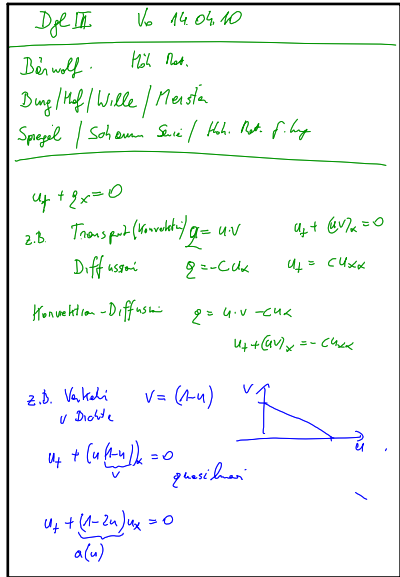 Dgl III Vo 14.04.10
Bärwolf. Höh. Mat.
Burg/Haf/Wille/Meister
Spiegel / Schaum Serie / Höh. Mat. f. Ing
u_t + q_x = 0
z.B. Transport (Konvektion) q = u·v u_t + (uv)_x = 0
Diffusion q = -c u_x u_t = c u_xx
Konvektion-Diffusion q = u·v - c u_x
u_t + (uv)_x = - c u_xx
z.B. Verkehr v = (1-u) v
v Dichte
u
u_t + (u(1-u))_x = 0
v
quasilinear
u_t + (1-2u) u_x = 0
a(u)